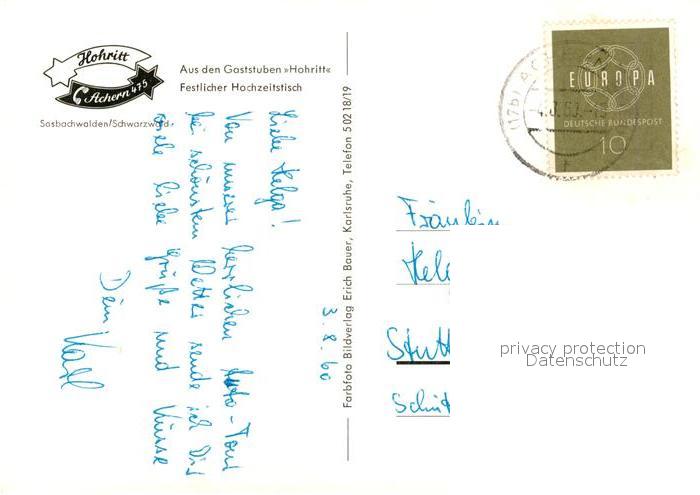 Hohritt
Achern 475
Sasbachwalden/Schwarzwald
Aus den Gaststuben »Hohritt«
Festlicher Hochzeitstisch
Liebe Helga!
Von unserer herrlichen Auto-Tour
bei schönstem Wetter sende ich Dir
viele liebe Grüße und Küsse
Dein
Karl
3.8.60
Farbfoto Bildverlag Erich Bauer, Karlsruhe, Telefon 5 02 18/19
EUROPA
DEUTSCHE BUNDESPOST
10
(17b) AC
Fräulein
Hel
Stutt
privacy protection
Datenschutz